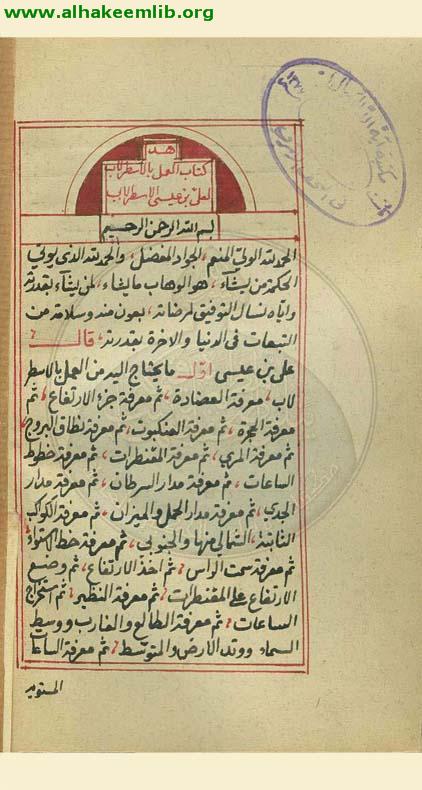 www.alhakeemlib.org
هذ
كتاب العمل بالاسطرلاب
لعلى بن عيسى الاسطرلابى
بسم الله الرحمن الرحيم
الحمد لله الولى المنعم، الجواد المفضل، والحمد لله الذى يوتي
الحكمة من يشآء، هو الوهاب ما يشاء، لمن يشآء بقدرته
واياه نسال التوفيق لمرضاته، بعون منه وسلامة من
التبعات فى الدنيا والاخرة بقدرته، قال
على بن عيسى اول ما يحتاج اليه من العمل بالاسطر
لاب، معرفة العضادة، ثم معرفة جزء الارتفاع، ثم
معرفة الحجرة، ثم معرفة العنكبوت، ثم معرفة نطاق البروج،
ثم معرفة المري، ثم معرفة المقنطرات، ثم معرفة خطوط
الساعات، ثم معرفة مدار السرطان، ثم معرفة مدار
الجدي، ثم معرفة مدار الحمل والميزان، ثم معرفة الكواكب
الثابتة، الشمالي منها والجنوبي، ثم معرفة خط الاستواء،
ثم معرفة سمت الراس، ثم اخذ الارتفاع، ثم وضع
الارتفاع على المقنطرات، ثم معرفة النظير، ثم استخراج
الساعات، ثم معرفة الطالع والغارب ووسط
السماء ووتد الارض والمتوسط، ثم معرفة الساعات
المستوية